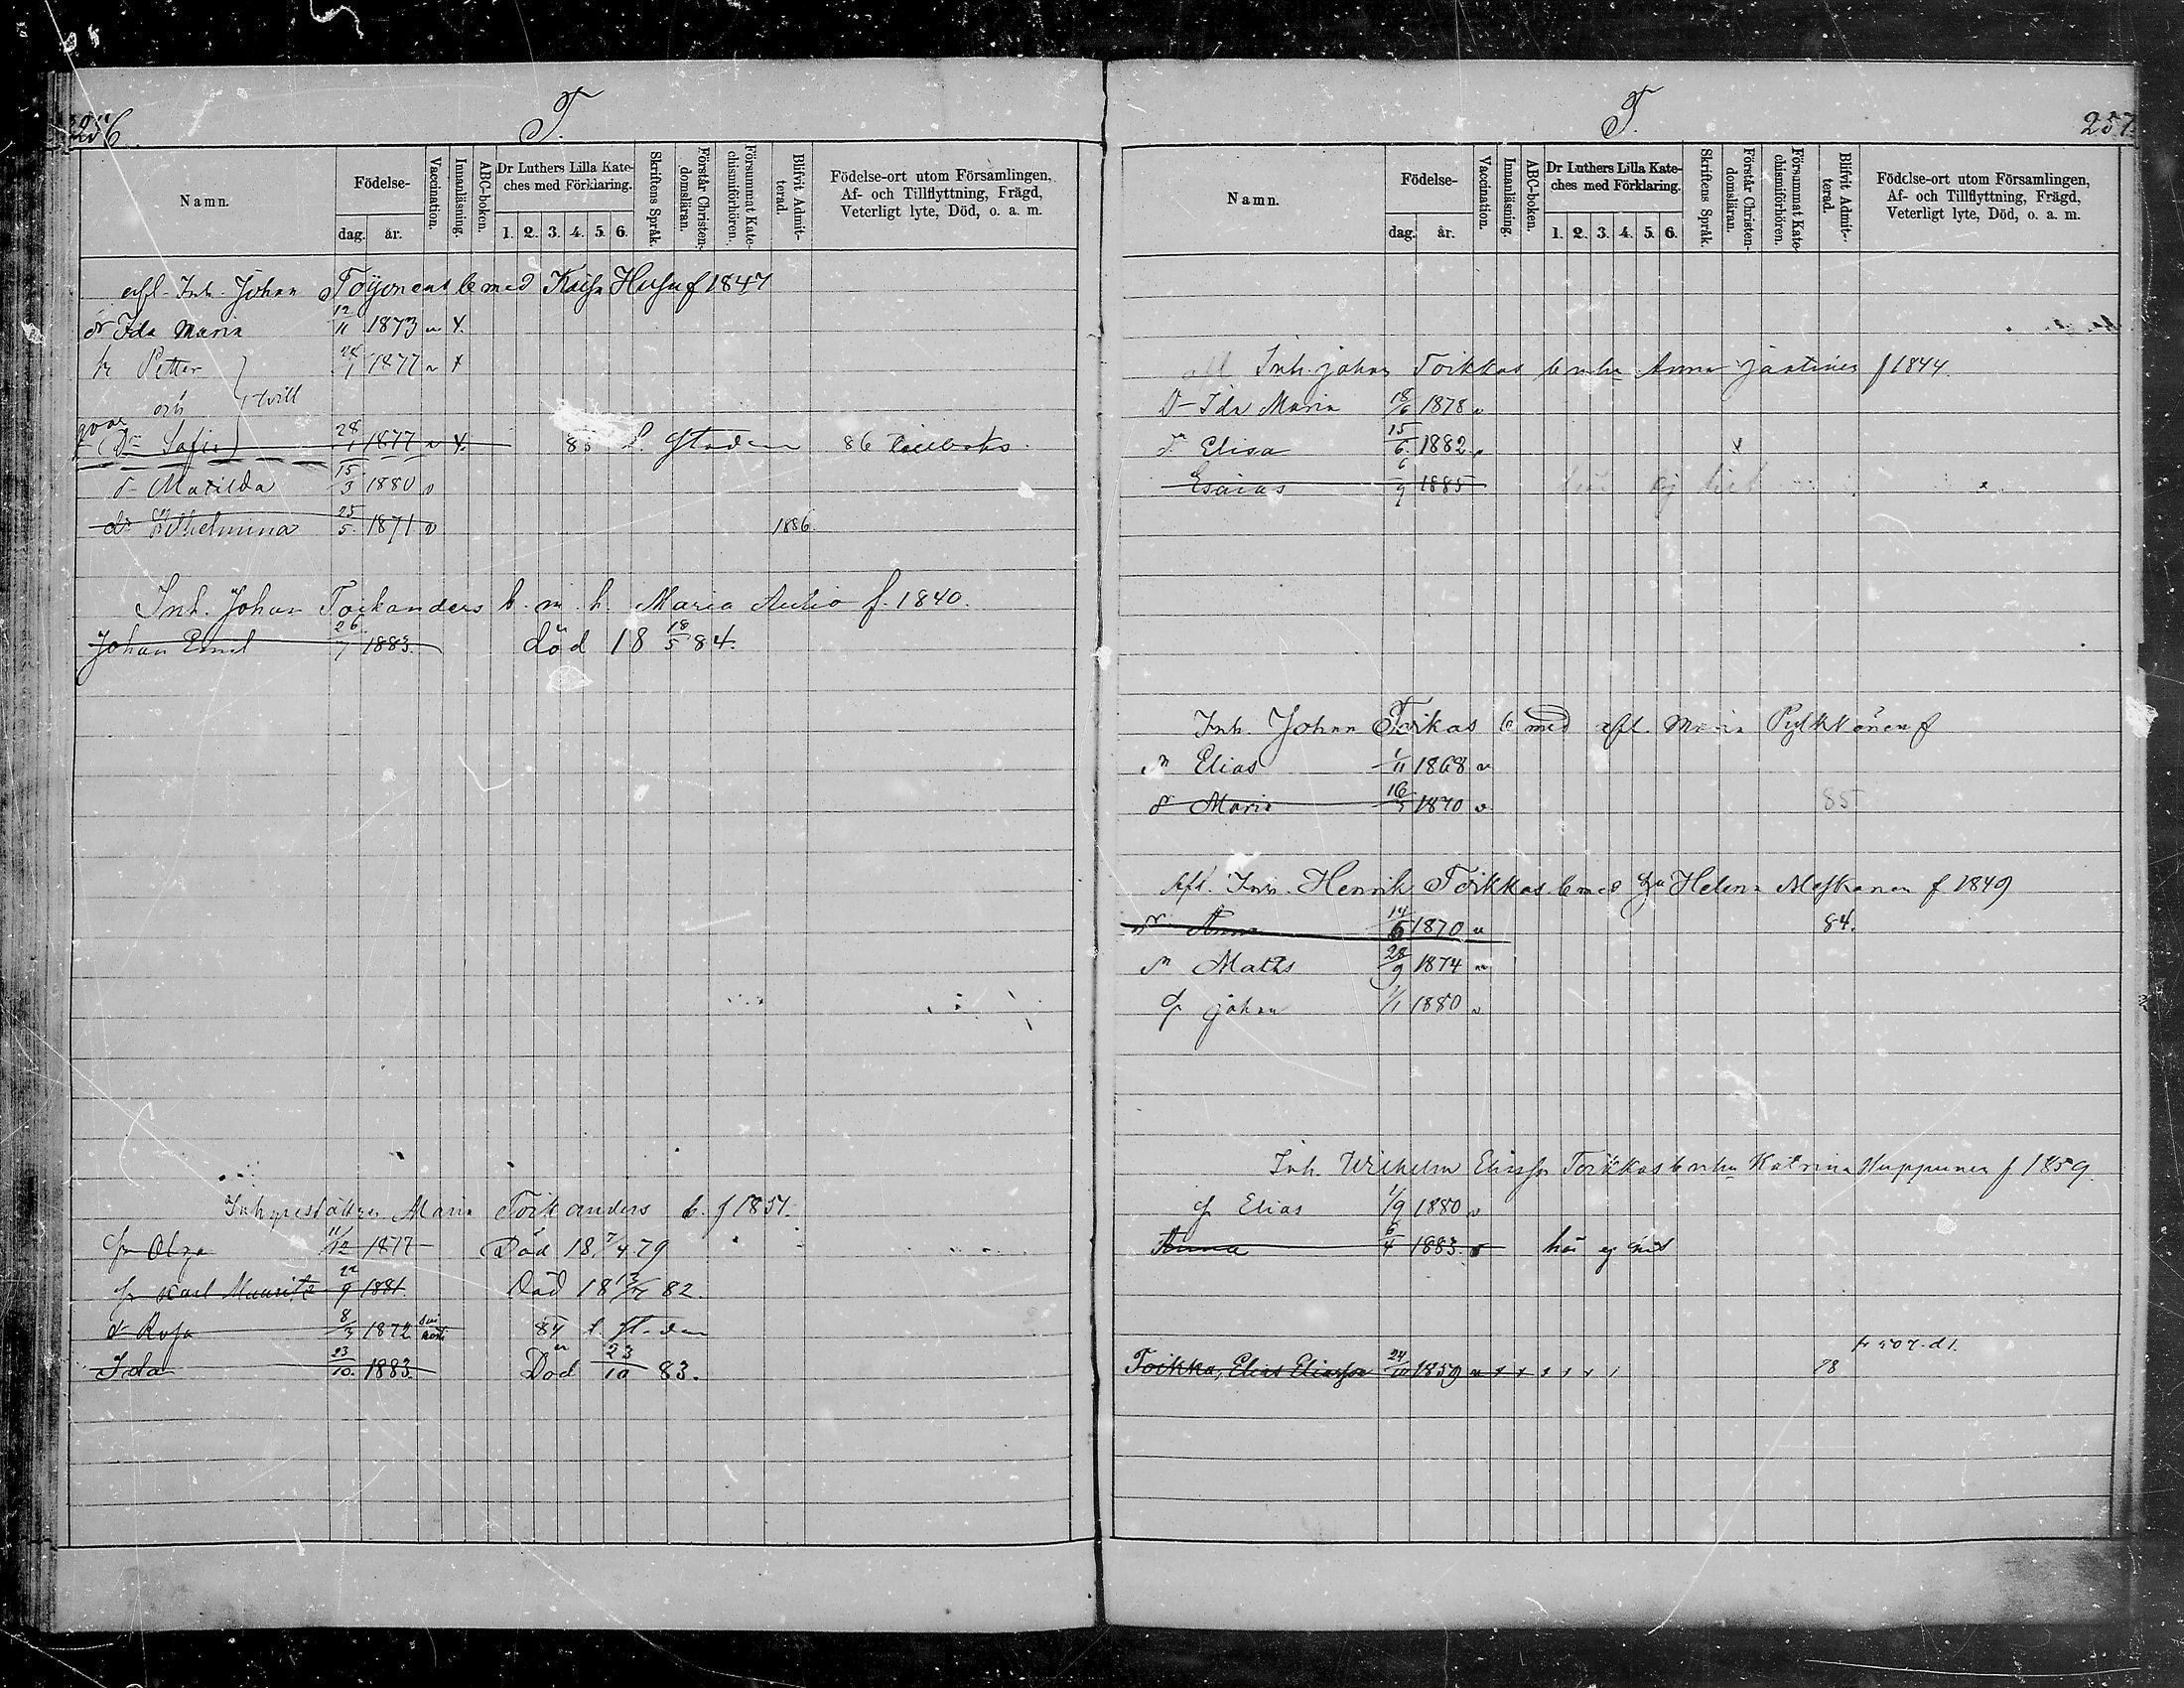 256
T.
Namn.
Födelse-
dag. år.
Vaccination.
Innanläsning.
ABC-boken.
Dr Luthers Lilla Kate-
ches med Förklaring.
1. 2. 3. 4. 5. 6.
Skriftens Språk.
Förstår Christen-
domsläran.
Försummat Kate-
chismiförhören.
Blifvit Admit-
terad.
Födelse-ort utom Församlingen,
Af- och Tillflyttning, Frägd,
Veterligt lyte, Död, o. a. m.
Inh. Johan b med f 1847
dr Ida Maria 12/11 1873 v x.
Petter 24/1 1877 v x
och tvill
qvar
Dr Sofia 28/1 1877 v x. 85 t. Staden 86
dr Matilda 15/3 1880 v
dr Wilhelmina 25/5 1871 v 1886.
Inh. Johan Toikanders b. m. h. Maria f. 1840.
Johan Emil 26/7 1883. död 18 18/5 84.
Maria Toikanders b. f 1851.
Olga 11/12 1877 Död 18 7/4 79
Karl Mauritz 22/9 1881. Död 18 82.
dr Rosa 8/3 1872 84 t. Staden
Ida 23/10. 1883. Död 23/10 83.
T.
257.
Namn.
Födelse-
dag. år.
Vaccination.
Innanläsning.
ABC-boken.
Dr Luthers Lilla Kate-
ches med Förklaring.
1. 2. 3. 4. 5. 6.
Skriftens Språk.
Förstår Christen-
domsläran.
Försummat Kate-
chismiförhören.
Blifvit Admit-
terad.
Födelse-ort utom Församlingen,
Af- och Tillflyttning, Frägd,
Veterligt lyte, Död, o. a. m.
Inh. johan Toikkas Anna f 1844.
Dr Ida Maria 18/6 1878 v
dr Elisa 15/6 1882 v x
Esaias 6/9 1885
Inh. Johan Toikas b med afl. Maria Pylkkönen f
sn Elias 1/11 1868 v
dr Maria 1870 v 85
Afl. Inh. Henrik Toikkas b med Helena f 1849
dr Anna 14/6 1870 v 84.
sn Matts 28/9 1874 v
johan 1/1 1880 v
Inh. Wilhelm Toikkas Katrina Huppunen f 1859.
Elias 1/9 1880 v
Anna 6/4 1883. här ej
Toikka, Elias Eliasson 1859 v x x x x x 78